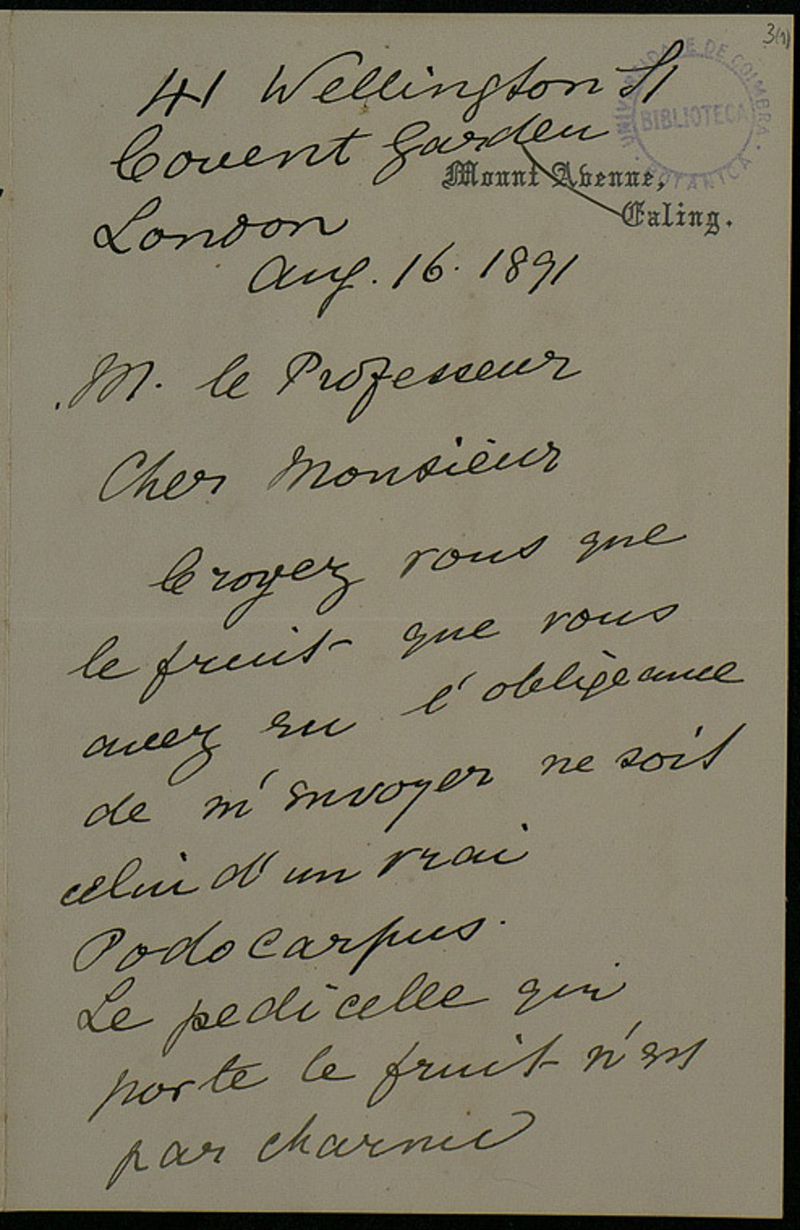 3(1)
41 Wellington St
Covent Garden
UNIVERSIDADE DE COIMBRA
BIBLIOTECA
BOTANICA
Mount Avenue,
Ealing.
London
Aug. 16. 1891
M. le Professeur
Cher Monsieur
Croyez vous que
le fruit que vous
avez eu l'obligeance
de m'envoyer ne soit
celui d'un vrai
Podocarpus.
Le pedicelle qui
porte le fruit n'est
pas charnu